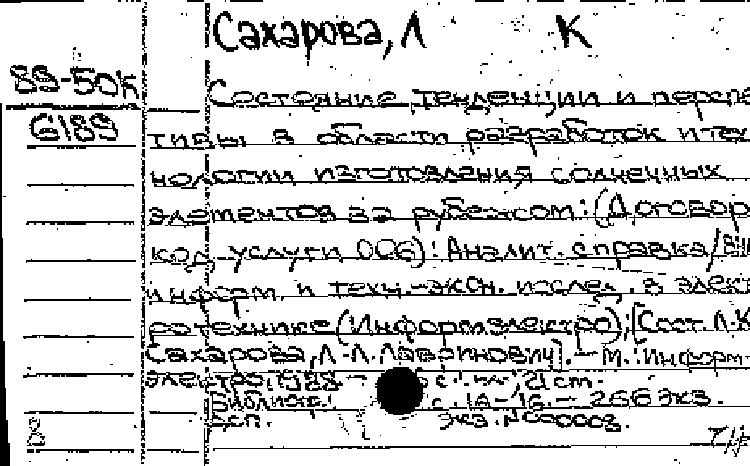 Сахарова, Л К
89-50К
6189
Состояние, тенденции и перспе
тивы в области разработок и тех
нологии изготовления солнечных
элементов за рубежом: (Договор
код услуги 006): Аналит. справка/ВНИ
информ. и техн.-экон. исслед. в элект
ротехнике (Информэлектро); [Сост. Л.К.
Сахарова, Л.Л. Лавринович]. – М.: Информ-
электро, 1988 – с. ил.; 21 см.
Библиогр.: с. 14-16. – 266 экз.
Б.ц. экз. №
8